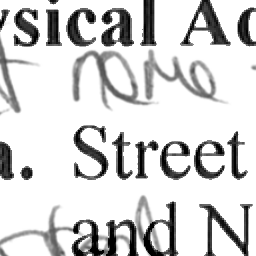 ysical Ad
name
a. Street
and N